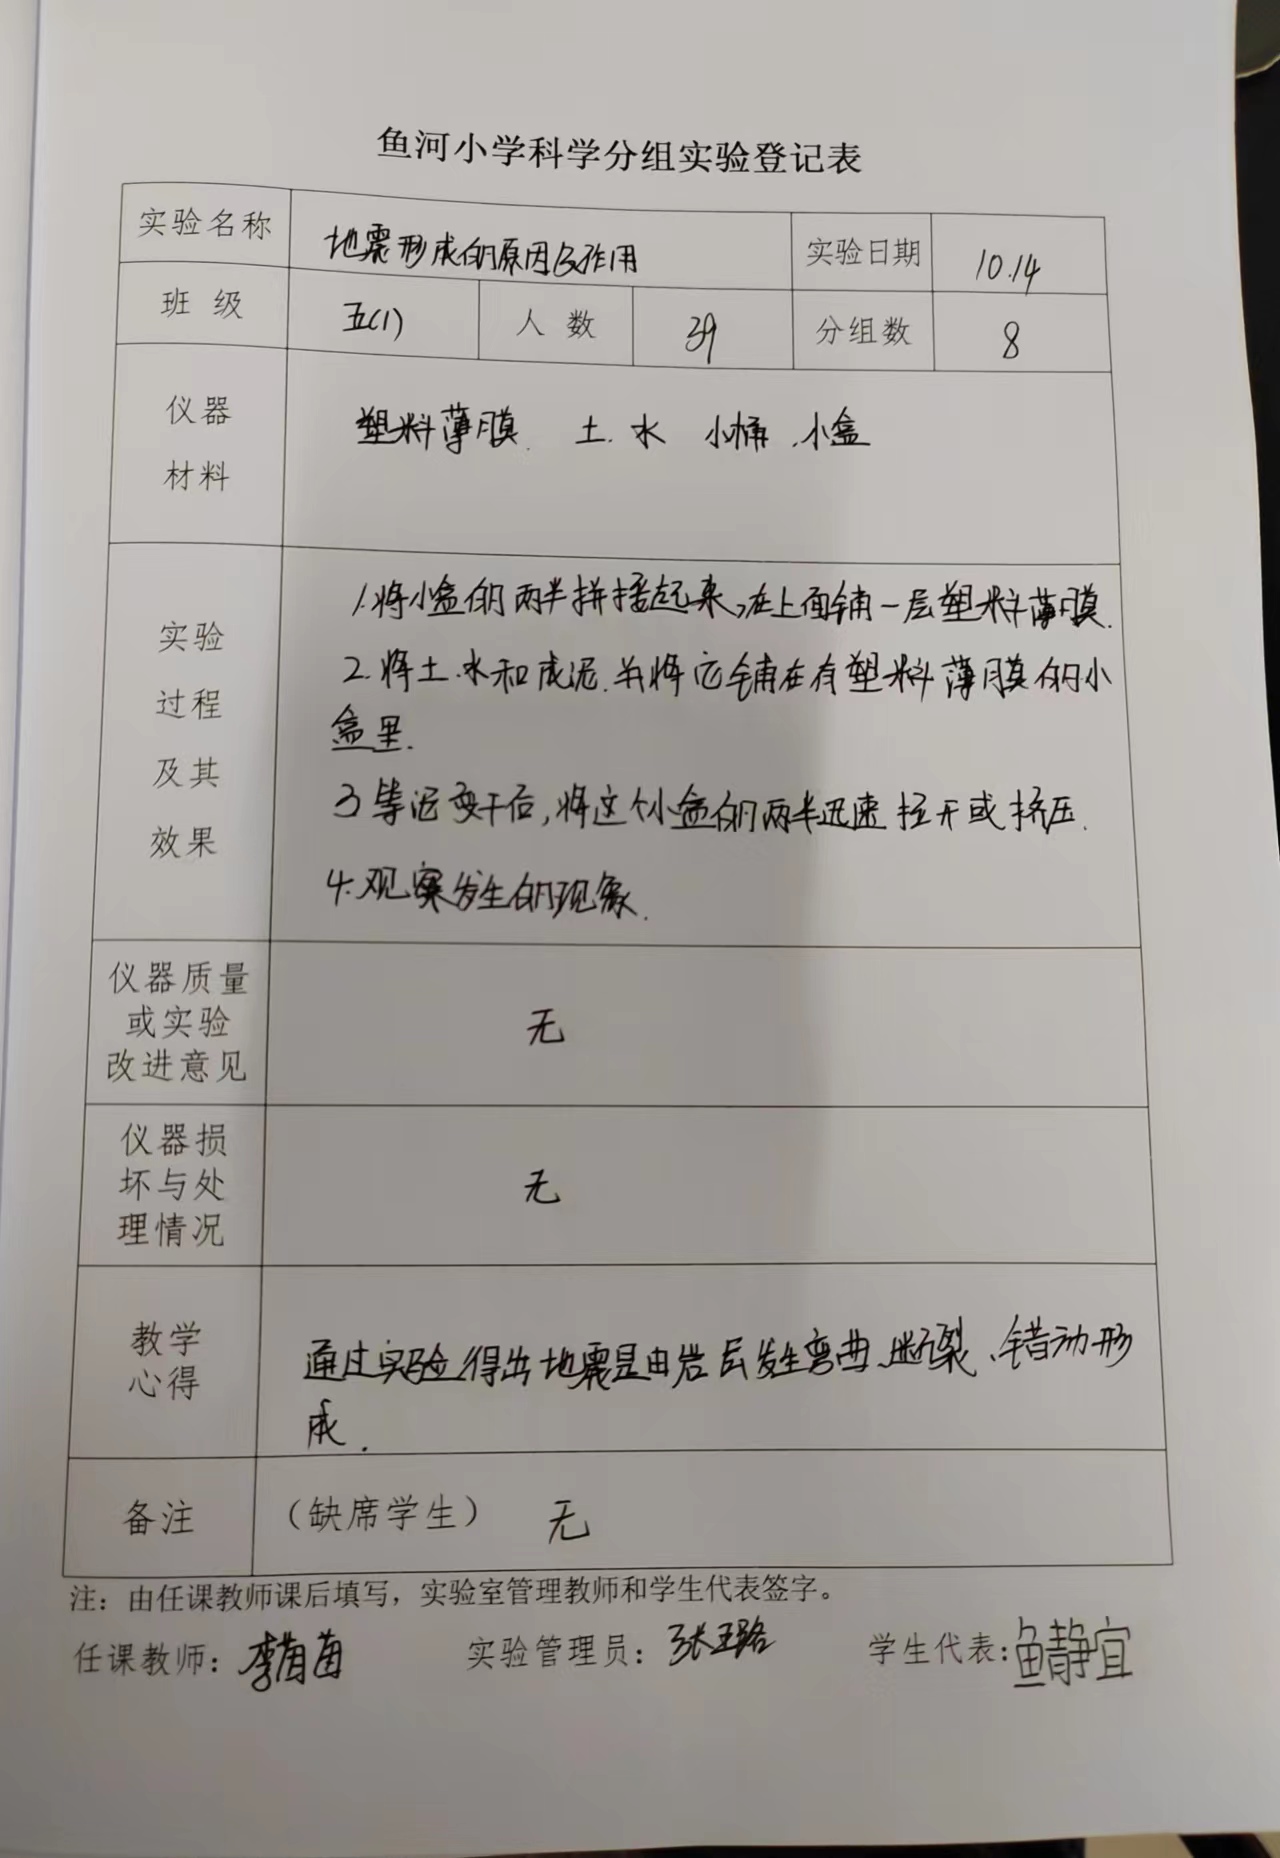 鱼河小学科学分组实验登记表
实验名称 地震形成的原因及作用 实验日期 10.14
班 级 五(1) 人 数 39 分组数 8
仪器
材料
塑料薄膜. 土. 水 小桶 .小盒
实验
过程
及其
效果
1.将小盒的两半拼接起来,在上面铺一层塑料薄膜.
2.将土.水和成泥.并将它铺在有塑料薄膜的小
盒里.
3 等泥变干后,将这个小盒的两半迅速拉开或挤压.
4.观察发生的现象.
仪器质量
或实验
改进意见
无
仪器损
坏与处
理情况
无
教学
心得
通过实验得出地震是由岩层发生弯曲、断裂、错动形
成.
备注 (缺席学生) 无
注：由任课教师课后填写，实验室管理教师和学生代表签字。
任课教师: 李 实验管理员: 张 学生代表: 鱼静宜